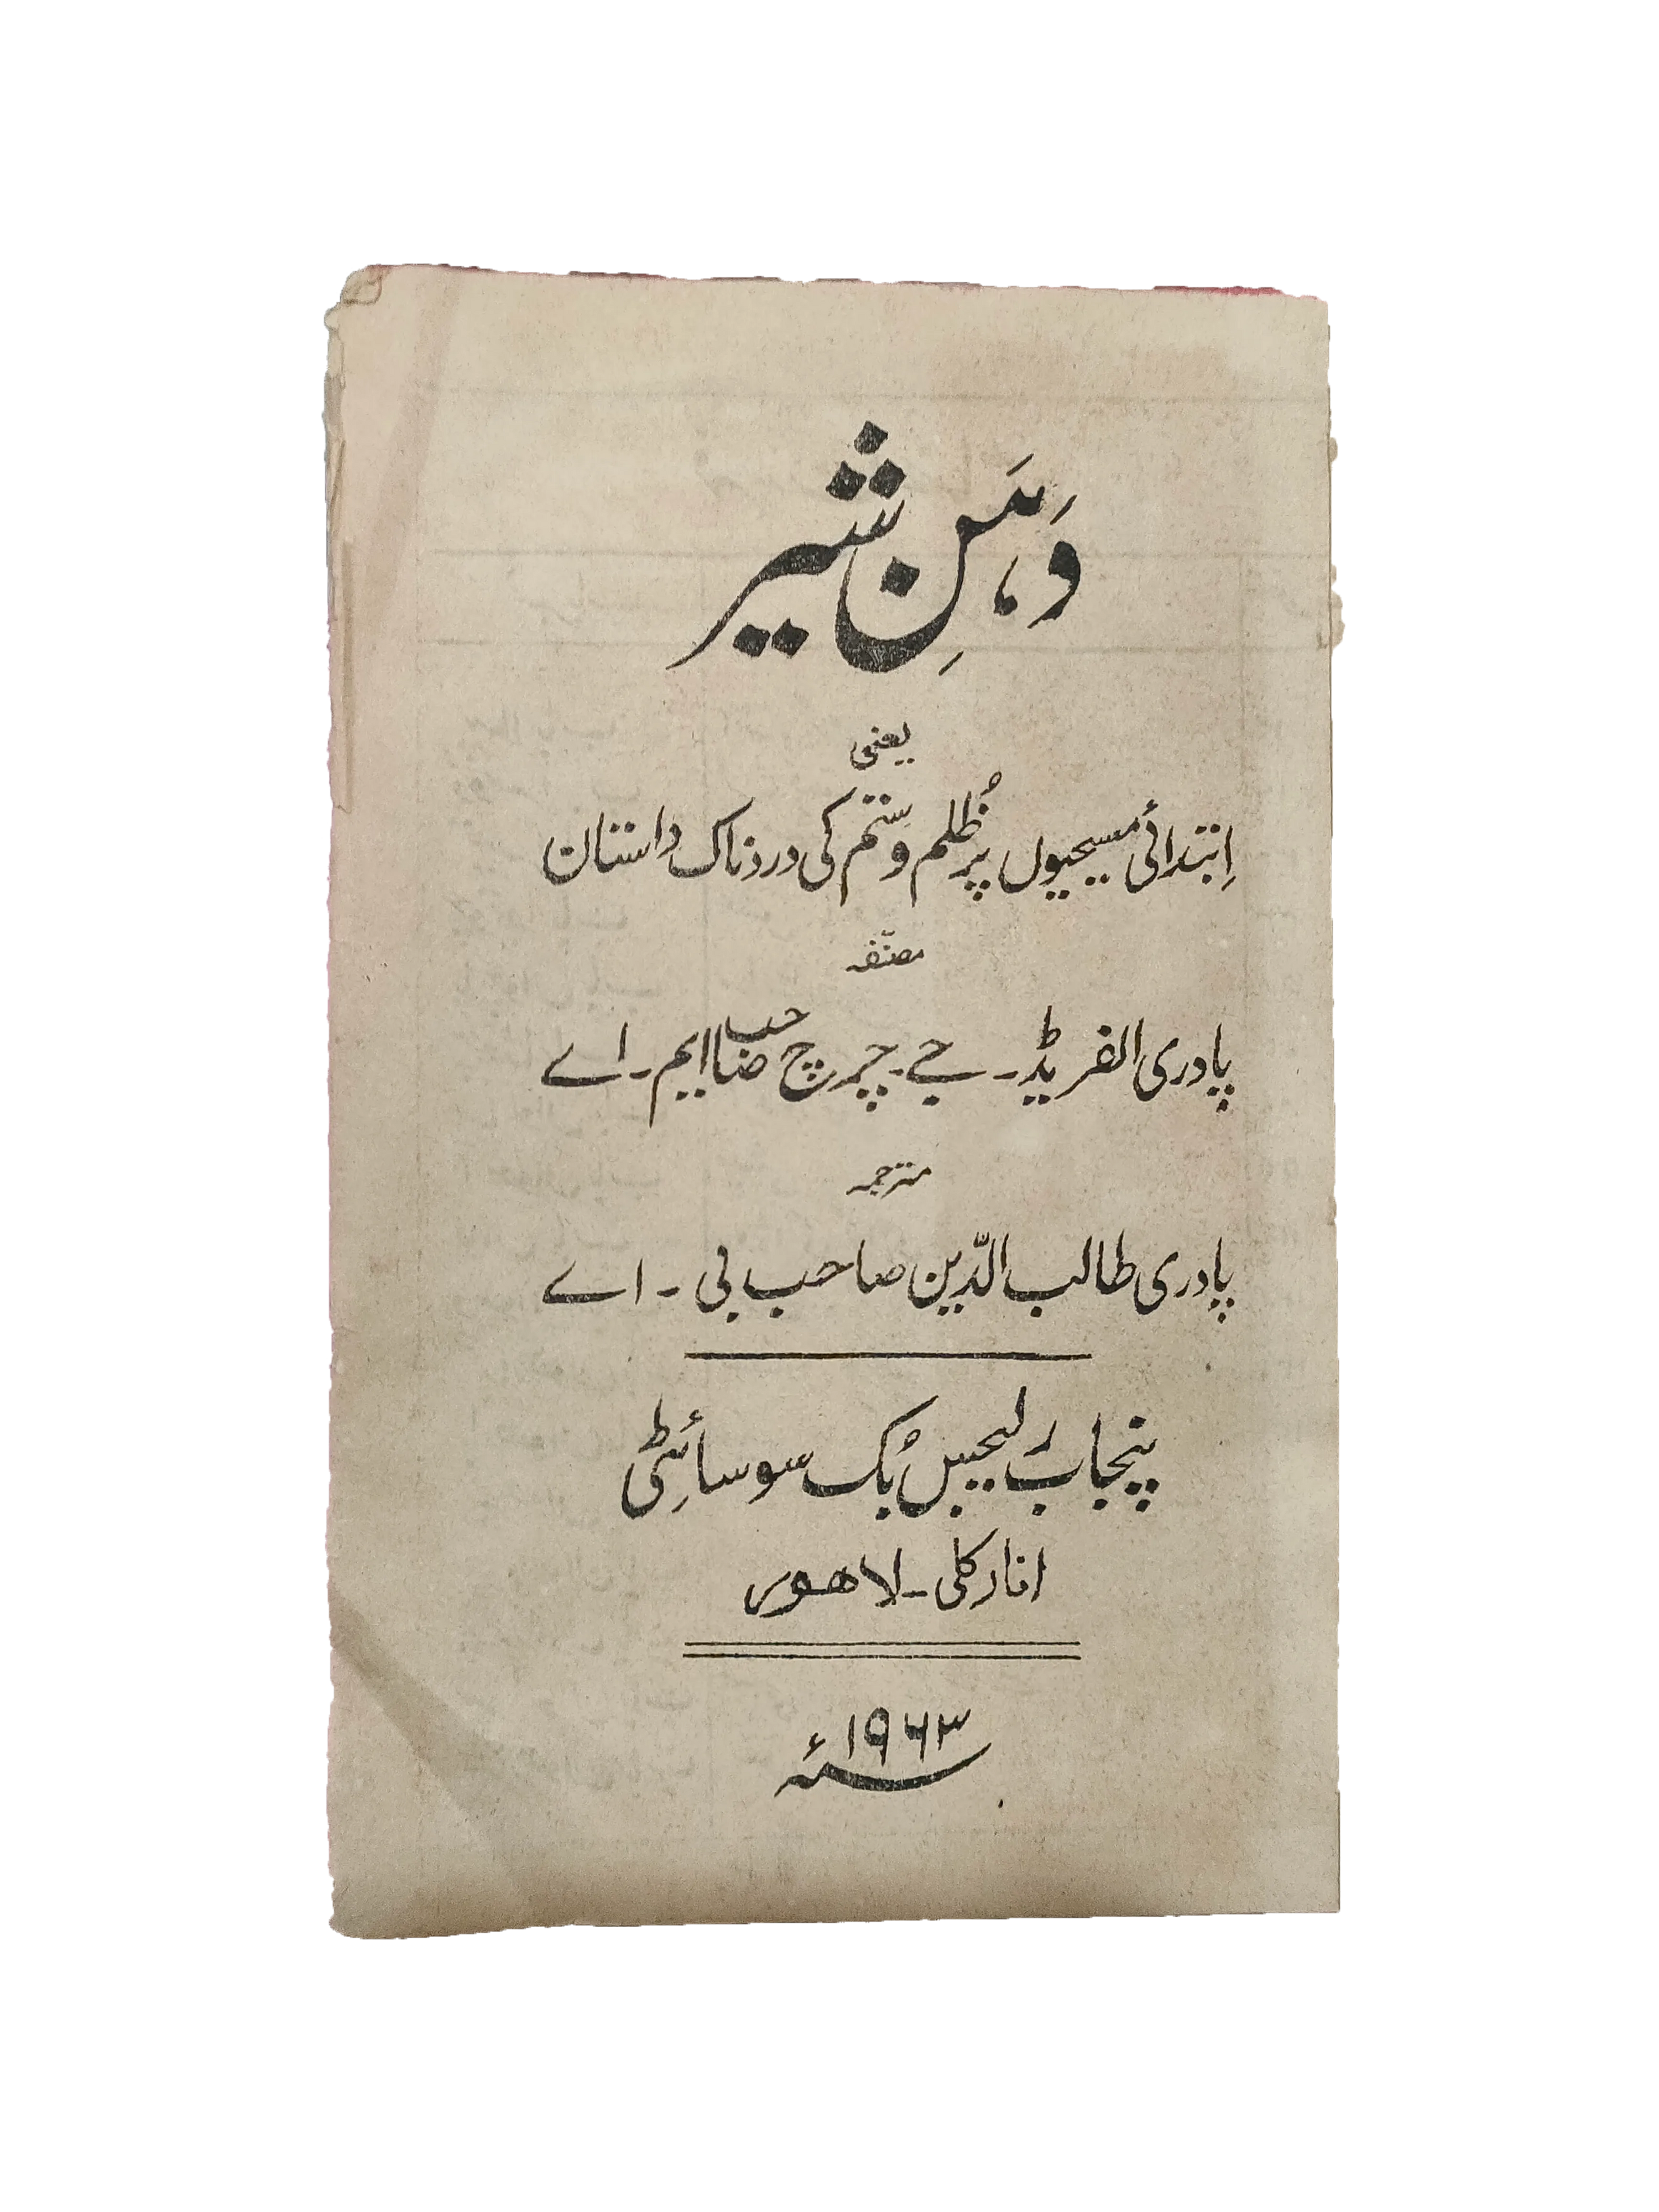 دَہَنِ شیر
یعنی
اِبتدائی مسیحیوں پر ظُلم و ستم کی دردناک داستان
مصنّفہ
پادری الفریڈ۔ جے۔ چرچ صاحب ایم۔ اے
مترجمہ
پادری طالب الدّین صاحب بی۔ اے
پنجاب رلیجیس بُک سوسائِٹی
انارکلی۔ لاھور
۱۹۶۳ء